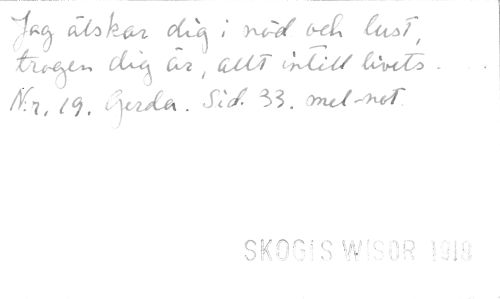 Jag älskar dig i nöd och lust,
trogen dig är, allt intill livets . . .
N:r, 19. Gerda. Sid. 33. mel-not.
SKOGIS WISOR 1919